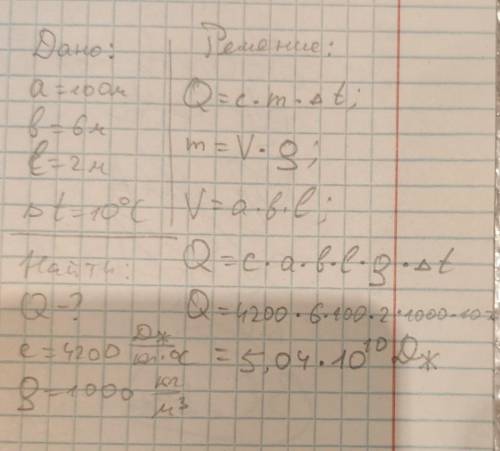 Дано:
a = 100м
b = 6м
l = 2м
Δt = 10°C
Найти:
Q - ?
c = 4200 Дж/кг·°C
ρ = 1000 кг/м³
Решение:
Q = c · m · Δt;
m = V · ρ;
V = a · b · l;
Q = c · a · b · l · ρ · Δt
Q = 4200 · 6 · 100 · 2 · 1000 · 10 =
= 5,04 · 10¹⁰ Дж